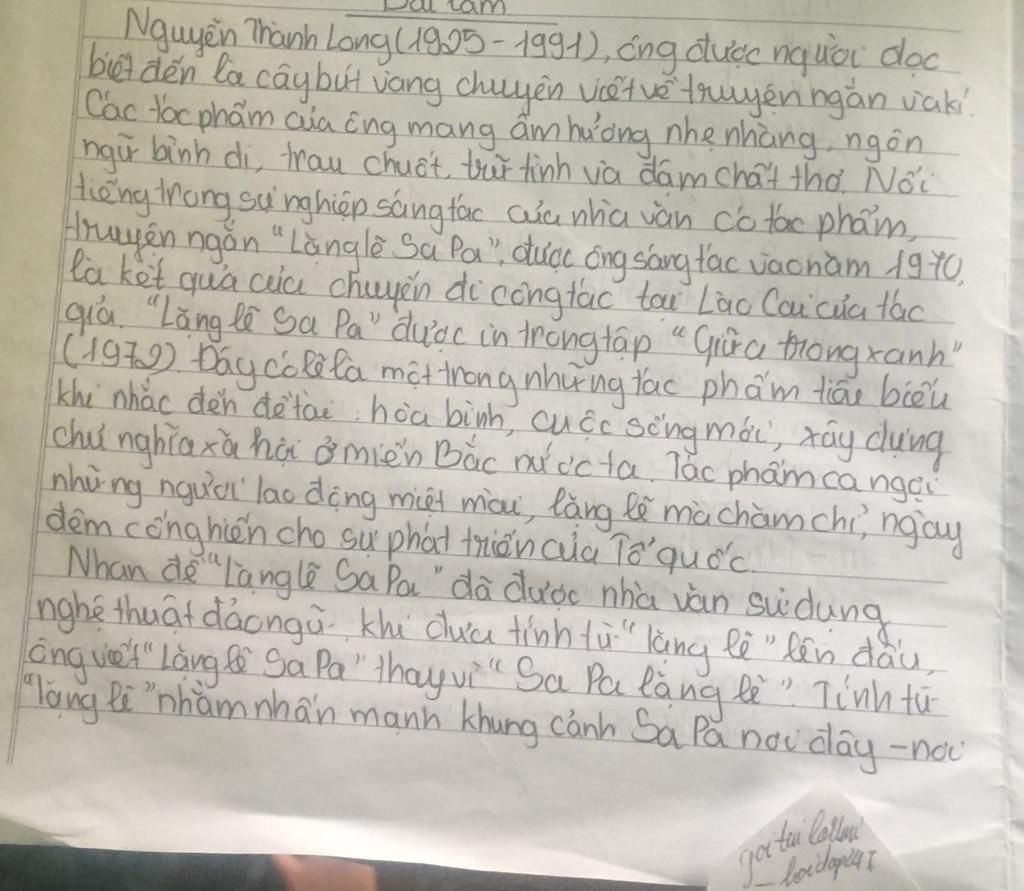 Bài làm
Nguyễn Thành Long (1925-1991), ông được người đọc
biết đến là cây bút vàng chuyên viết về truyện ngắn và kí.
Các tác phẩm của ông mang âm hưởng nhẹ nhàng, ngôn
ngữ bình dị, trau chuốt, trữ tình và đậm chất thơ. Nổi
tiếng trong sự nghiệp sáng tác của nhà văn có tác phẩm,
truyện ngắn "Lặng lẽ Sa Pa", được ông sáng tác vào năm 1970,
là kết quả của chuyến đi công tác tại Lào Cai của tác
giả. "Lặng lẽ Sa Pa" được in trong tập "Giữa trong xanh"
(1972). Đây có lẽ là một trong những tác phẩm tiêu biểu
khi nhắc đến đề tài: hòa bình, cuộc sống mới, xây dựng
chủ nghĩa xã hội ở miền Bắc nước ta. Tác phẩm ca ngợi
những người lao động miệt mài, lặng lẽ mà chăm chỉ, ngày
đêm cống hiến cho sự phát triển của Tổ quốc.
Nhan đề "Lặng lẽ Sa Pa" đã được nhà văn sử dụng
nghệ thuật đảo ngữ khi đưa tính từ "lặng lẽ" lên đầu,
ông viết "Lặng lẽ Sa Pa" thay vì "Sa Pa lặng lẽ". Tính từ
"lặng lẽ" nhằm nhấn mạnh khung cảnh Sa Pa nơi đây - nơi